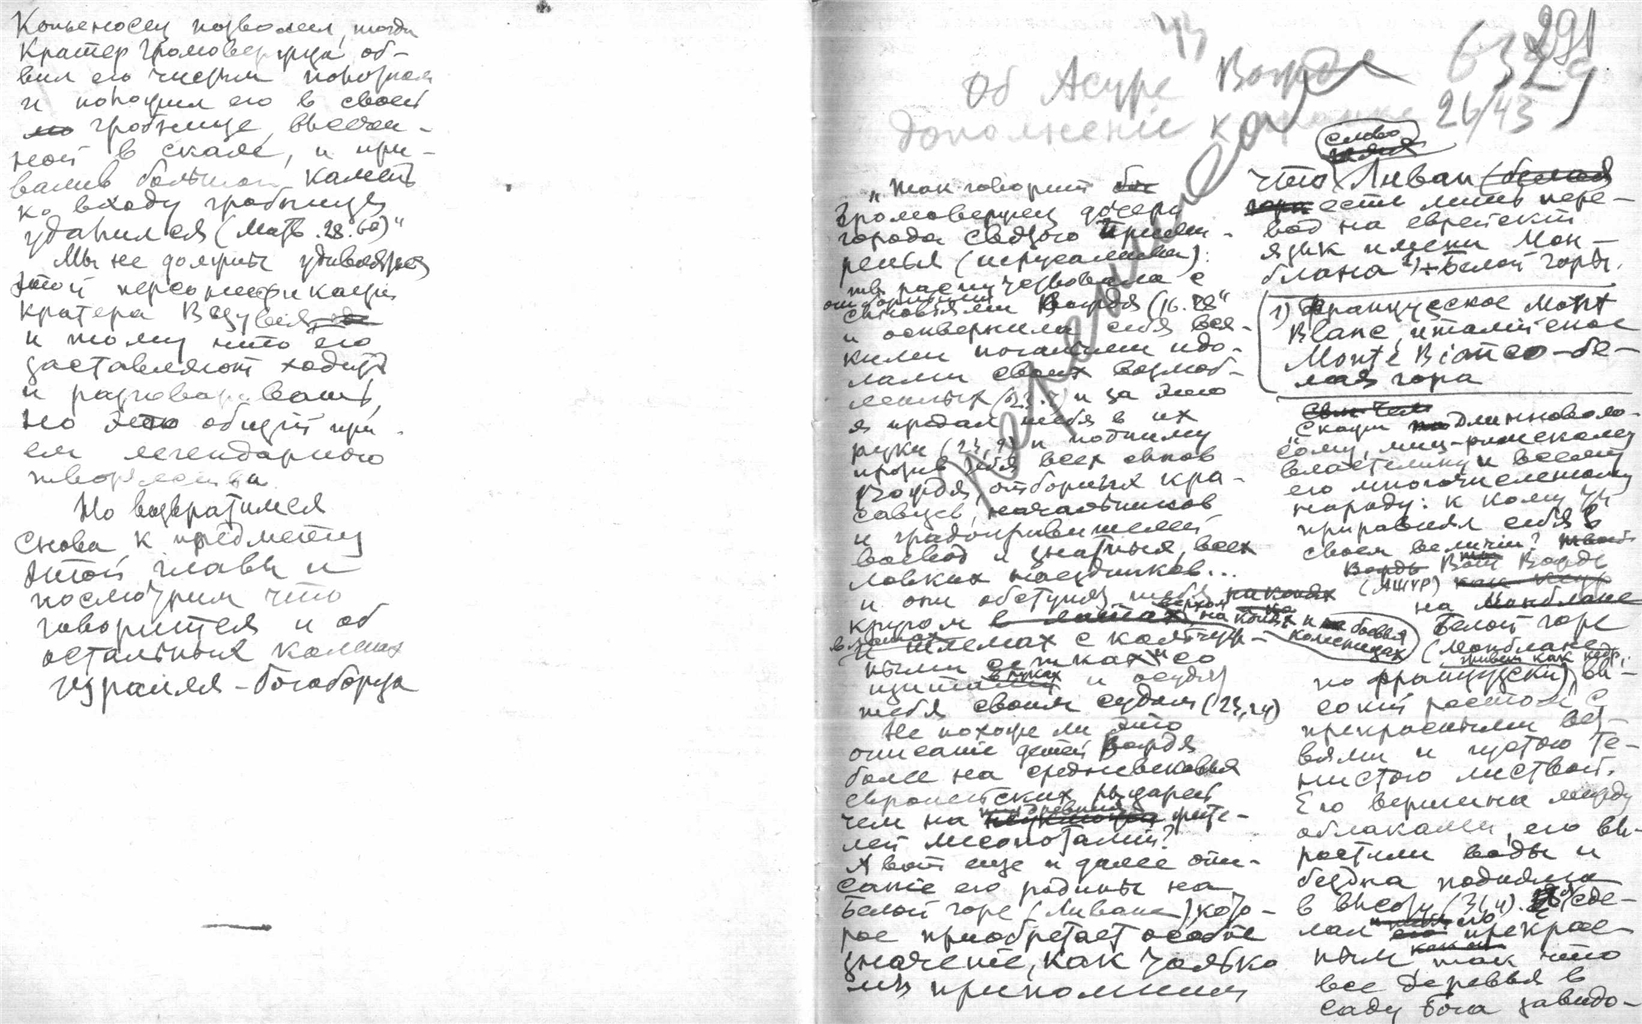 Копьеносец позволил, тогда
Кратер Громовержца об-
вил его чистым
и положил его в своей
гробнице, высечен-
ной в скале, и при-
валив большой камень
ко входу гробницы
удалился (Матв. 28.60)"
Мы не должны удивляться
этой персонификации
Кратера Везувия
и тому что его
заставляют ходить
и разговаривать,
но это общий при-
ем легендарного
творчества.
Но возвратимся
снова к предмету
этой главы и
посмотрим что
говорится и об
остальных
Израиля-богоборца
44
291
Об Асуре Вожде
632
дополненіе к
26/43
"Так говорит
Громовержец дочери
города Святого прими-
ренья (иерусалима):
ты распутствовала с
отборными
сыновьями Вождя (16.28"
и осквернила себя вся-
кими погаными идо-
лами своих возлюб-
ленных 23.7 и за это
я продал тебя в их
руки (23,9) и подниму
против тебя всех сынов
Вождя, отборных кра-
савцев, начальников
и градоправителей
воевод и знатных, всех
ловких наездников...
и они обступят тебя
кругом верхом на конях и на боевых
колесницах
в латах
и шлемах с кольчуж-
ными сетками и со
щитами в руках и осудят
тебя своим судом (23,24)
Не похоже ли это
описание детей Вождя
более на средневековых
европейских рыцарей
чем на древних жите-
лей Месопотамии?
А вот еще и далее опи-
саніе его родины на
Белой горе (Ливане) кото-
рое приобретает особое
значение, как только
мы припомним
слово
что Ливан (белая
гора есть лишь пере-
вод на еврейский
язык имени Мон-
блана 1) Белой горы.
1) Французское Mont
Blanc, итальянское
Monte Bianco - бе-
лая гора
Скажи длинноволо-
сому, миц-римскому
властелину и всему
его многочисленному
народу: к кому ты
приравнял себя в
своем величии?
Вот Вождь
(Ашур)
на Монблане
Белой горе
(Монблане
живет как кедр,
по французски) вы-
сокий ростом с
прекрасными вет-
вями и густою те-
нистою листвой.
Его вершины между
облаками, его вы-
растили воды и
бездна подняла
в высоту (31,4). Я сде-
лал его прекрас-
ным так что
все деревья в
саду бога завидо-